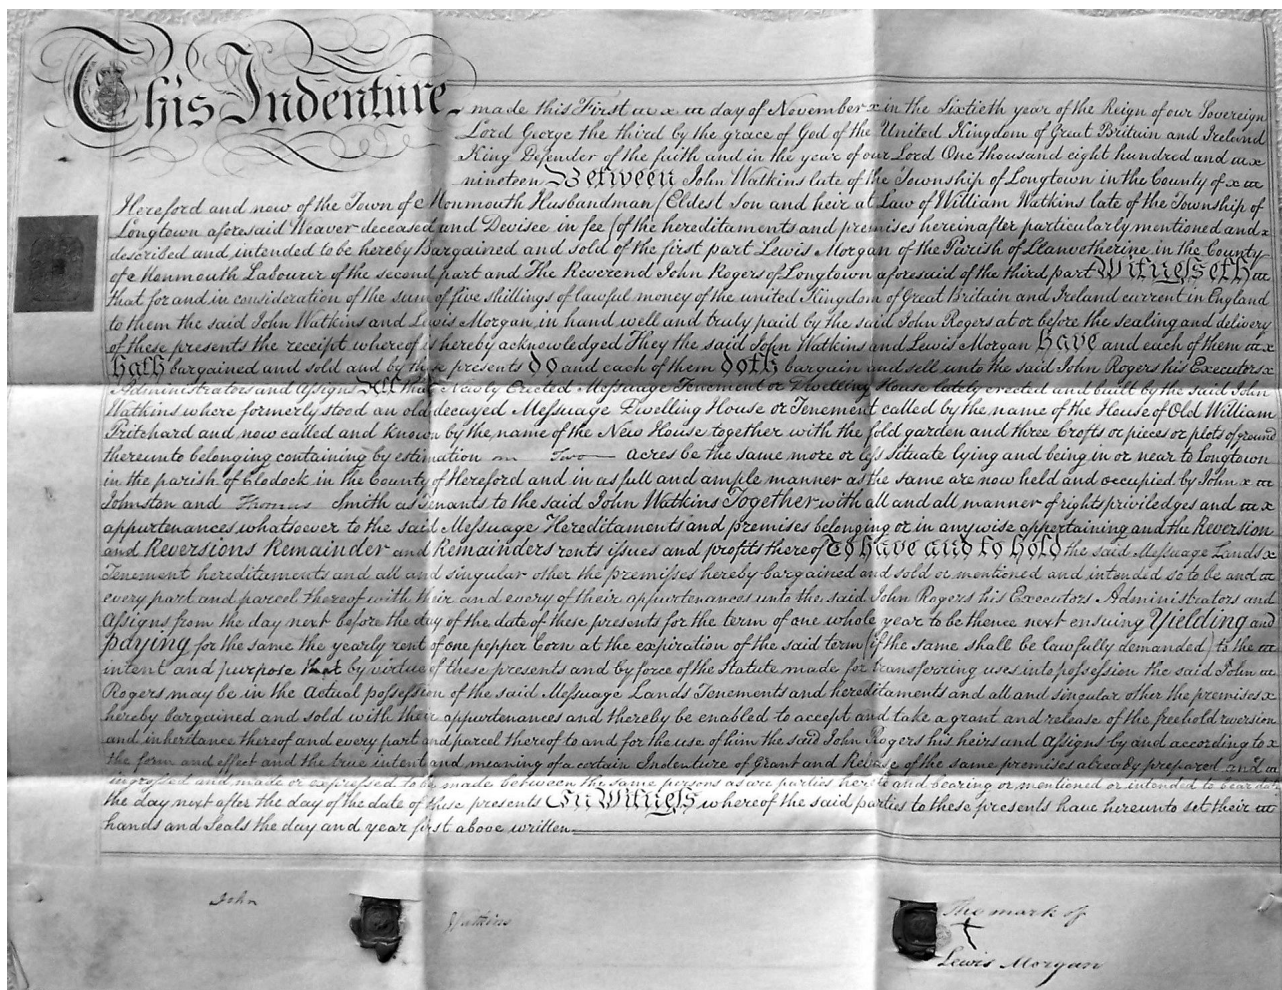 This Indenture made this First day of November in the Sixtieth year of the Reign of our Sovereign
Lord George the third by the grace of God of the United Kingdom of Great Britain and Ireland
King Defender of the faith and in the year of our Lord One thousand eight hundred and
nineteen Between John Watkins late of the Township of Longtown in the County of
Hereford and now of the Town of Monmouth Husbandman (Eldest Son and heir at Law of William Watkins late of the Township of
Longtown aforesaid Weaver deceased and Devisee in fee (of the hereditaments and premises hereinafter particularly mentioned and
described and intended to be hereby Bargained and sold of the first part Lewis Morgan of the Parish of Llanvetherine in the County
of Monmouth Labourer of the second part and The Reverend John Rogers of Longtown aforesaid of the third part Witnesseth
that for and in consideration of the sum of five shillings of lawful money of the united Kingdom of Great Britain and Ireland current in England
to them the said John Watkins and Lewis Morgan in hand well and truly paid by the said John Rogers at or before the sealing and delivery
of these presents the receipt whereof is hereby acknowledged They the said John Watkins and Lewis Morgan Have and each of them
Hath bargained and sold and by these presents Do and each of them Doth bargain and sell unto the said John Rogers his Executors
Administrators and Assigns All that Newly Erected Messuage Tenement or Dwelling House lately erected and built by the said John
Watkins where formerly stood an old decayed Messuage Dwelling House or Tenement called by the name of the House of Old William
Pritchard and now called and known by the name of the New House together with the fold garden and three Crofts or pieces or plots of ground
thereunto belonging containing by estimation Two acres be the same more or less situate lying and being in or near to Longtown
in the parish of Clodock in the County of Hereford and in as full and ample manner as the same are now held and occupied by John
Johnston and Thomas Smith as Tenants to the said John Watkins Together with all and all manner of rights priviledges and
appurtenances whatsoever to the said Messuage Hereditaments and premises belonging or in anywise appertaining and the Reversion
and Reversions Remainder and Remainders rents issues and profits thereof To have and to hold the said Messuage Lands
Tenement hereditaments and all and singular other the premises hereby bargained and sold or mentioned and intended so to be and
every part and parcel thereof with their and every of their appurtenances unto the said John Rogers his Executors Administrators and
Assigns from the day next before the day of the date of these presents for the term of one whole year to be thence next ensuing Yielding and
paying for the same the yearly rent of one pepper Corn at the expiration of the said term (if the same shall be lawfully demanded) to the
intent and purpose that by virtue of these presents and by force of the Statute made for transferring uses into possession the said John
Rogers may be in the Actual possession of the said Messuage Lands Tenements and hereditaments and all and singular other the premises
hereby bargained and sold with their appurtenances and thereby be enabled to accept and take a grant and release of the freehold reversion
and inheritance thereof and every part and parcel thereof to and for the use of him the said John Rogers his heirs and Assigns by and according to
the form and effect and the true intent and meaning of a certain Indenture of Grant and Release of the same premises already prepared and
ingrossed and made or expressed to be made between the same persons as are parties hereto and bearing or mentioned or intended to bear date
the day next after the day of the date of these presents In Witness whereof the said parties to these presents have hereunto set their
hands and Seals the day and year first above written
John Watkins
The mark of
Lewis Morgan